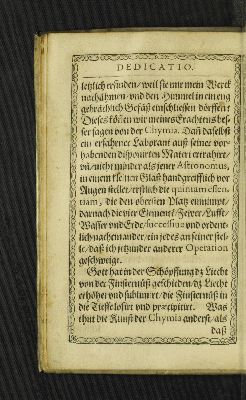 DEDICATIO.
letzlich erfinden/ weil sie nur mein Werck
nachähmen/ vnd den Himmel in ein eng
gebrächlich Gefäß einschliessen dörffen:
Dieses können wir meines Erachtens bes-
ser sagen von der Chymia. Daß daselbst
ein erfahrner Laborant auß seiner vor-
habenden disponirten Materi erfähret/
vñ/ nicht minder als jener Astronomus,
in einem kleinen Glaß handgreifflich vor
Augen stellet/ erstlich die quintam essen-
tiam, die den obersten Platz einnimpt/
darnach die vier Element/ Fewer/ Lufft/
Wasser vnd Erde/ successiuè vnd ordent-
lich nacheinander/ ein jedes an seiner stel-
le/ daß ich jetzunder anderer Operation
geschweige.
Gott hat in der Schöpffung dz Liecht
von der Finsternüß geschieden/ dz Liecht
erhöhet vnd sublimirt/ die Finsternüß in
die Tieffe lossirt vnd præcipitirt. Was
thut die Kunst der Chymia anderst/ als
daß